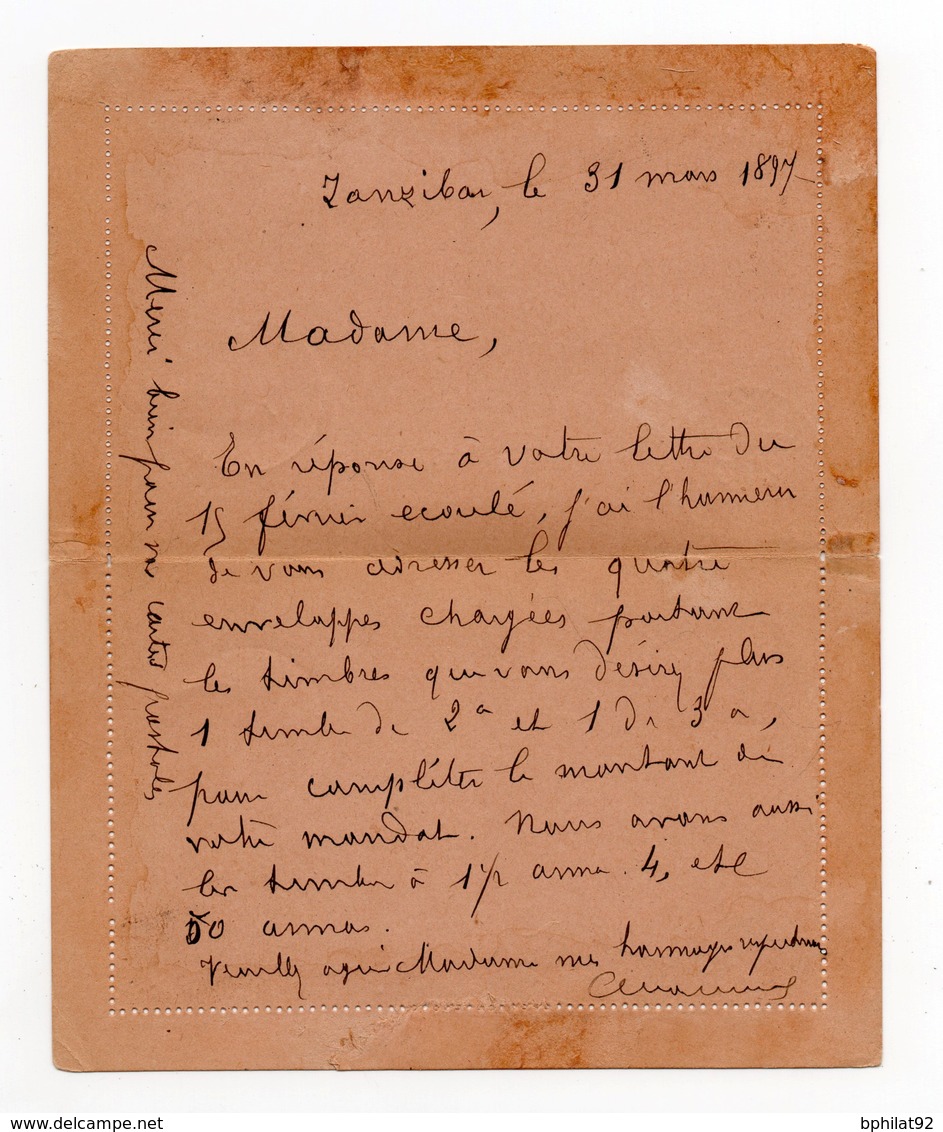 Zanzibar, le 31 mars 1897
Madame,
En réponse à votre lettre du
15 février ecoulé, j'ai l'honneur
de vous adresser les quatre
enveloppes chargées portant
les timbres que vous désirez plus
1 timbre de 2 a et 1 de 3 a,
pour compléter le montant de
votre mandat. Nous avons aussi
les timbres à 1 1/2 anna. 4, et
50 annas.
Veuillez agréer Madame mes hommages respectueux
Merci bien pour vos cartes postales
bphilat92